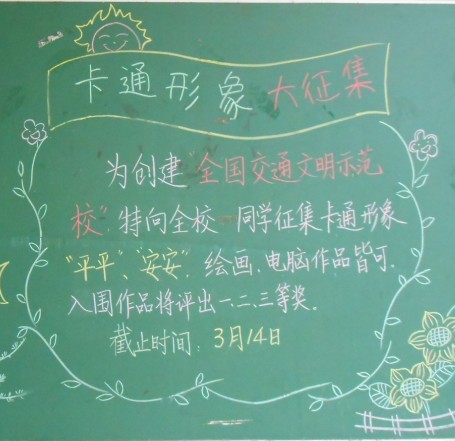 卡通形象大征集
为创建"全国交通文明示范
校"，特向全校同学征集卡通形象
"平平"、"安安"，绘画、电脑作品皆可.
入围作品将评出一、二、三等奖.
截止时间：3月14日